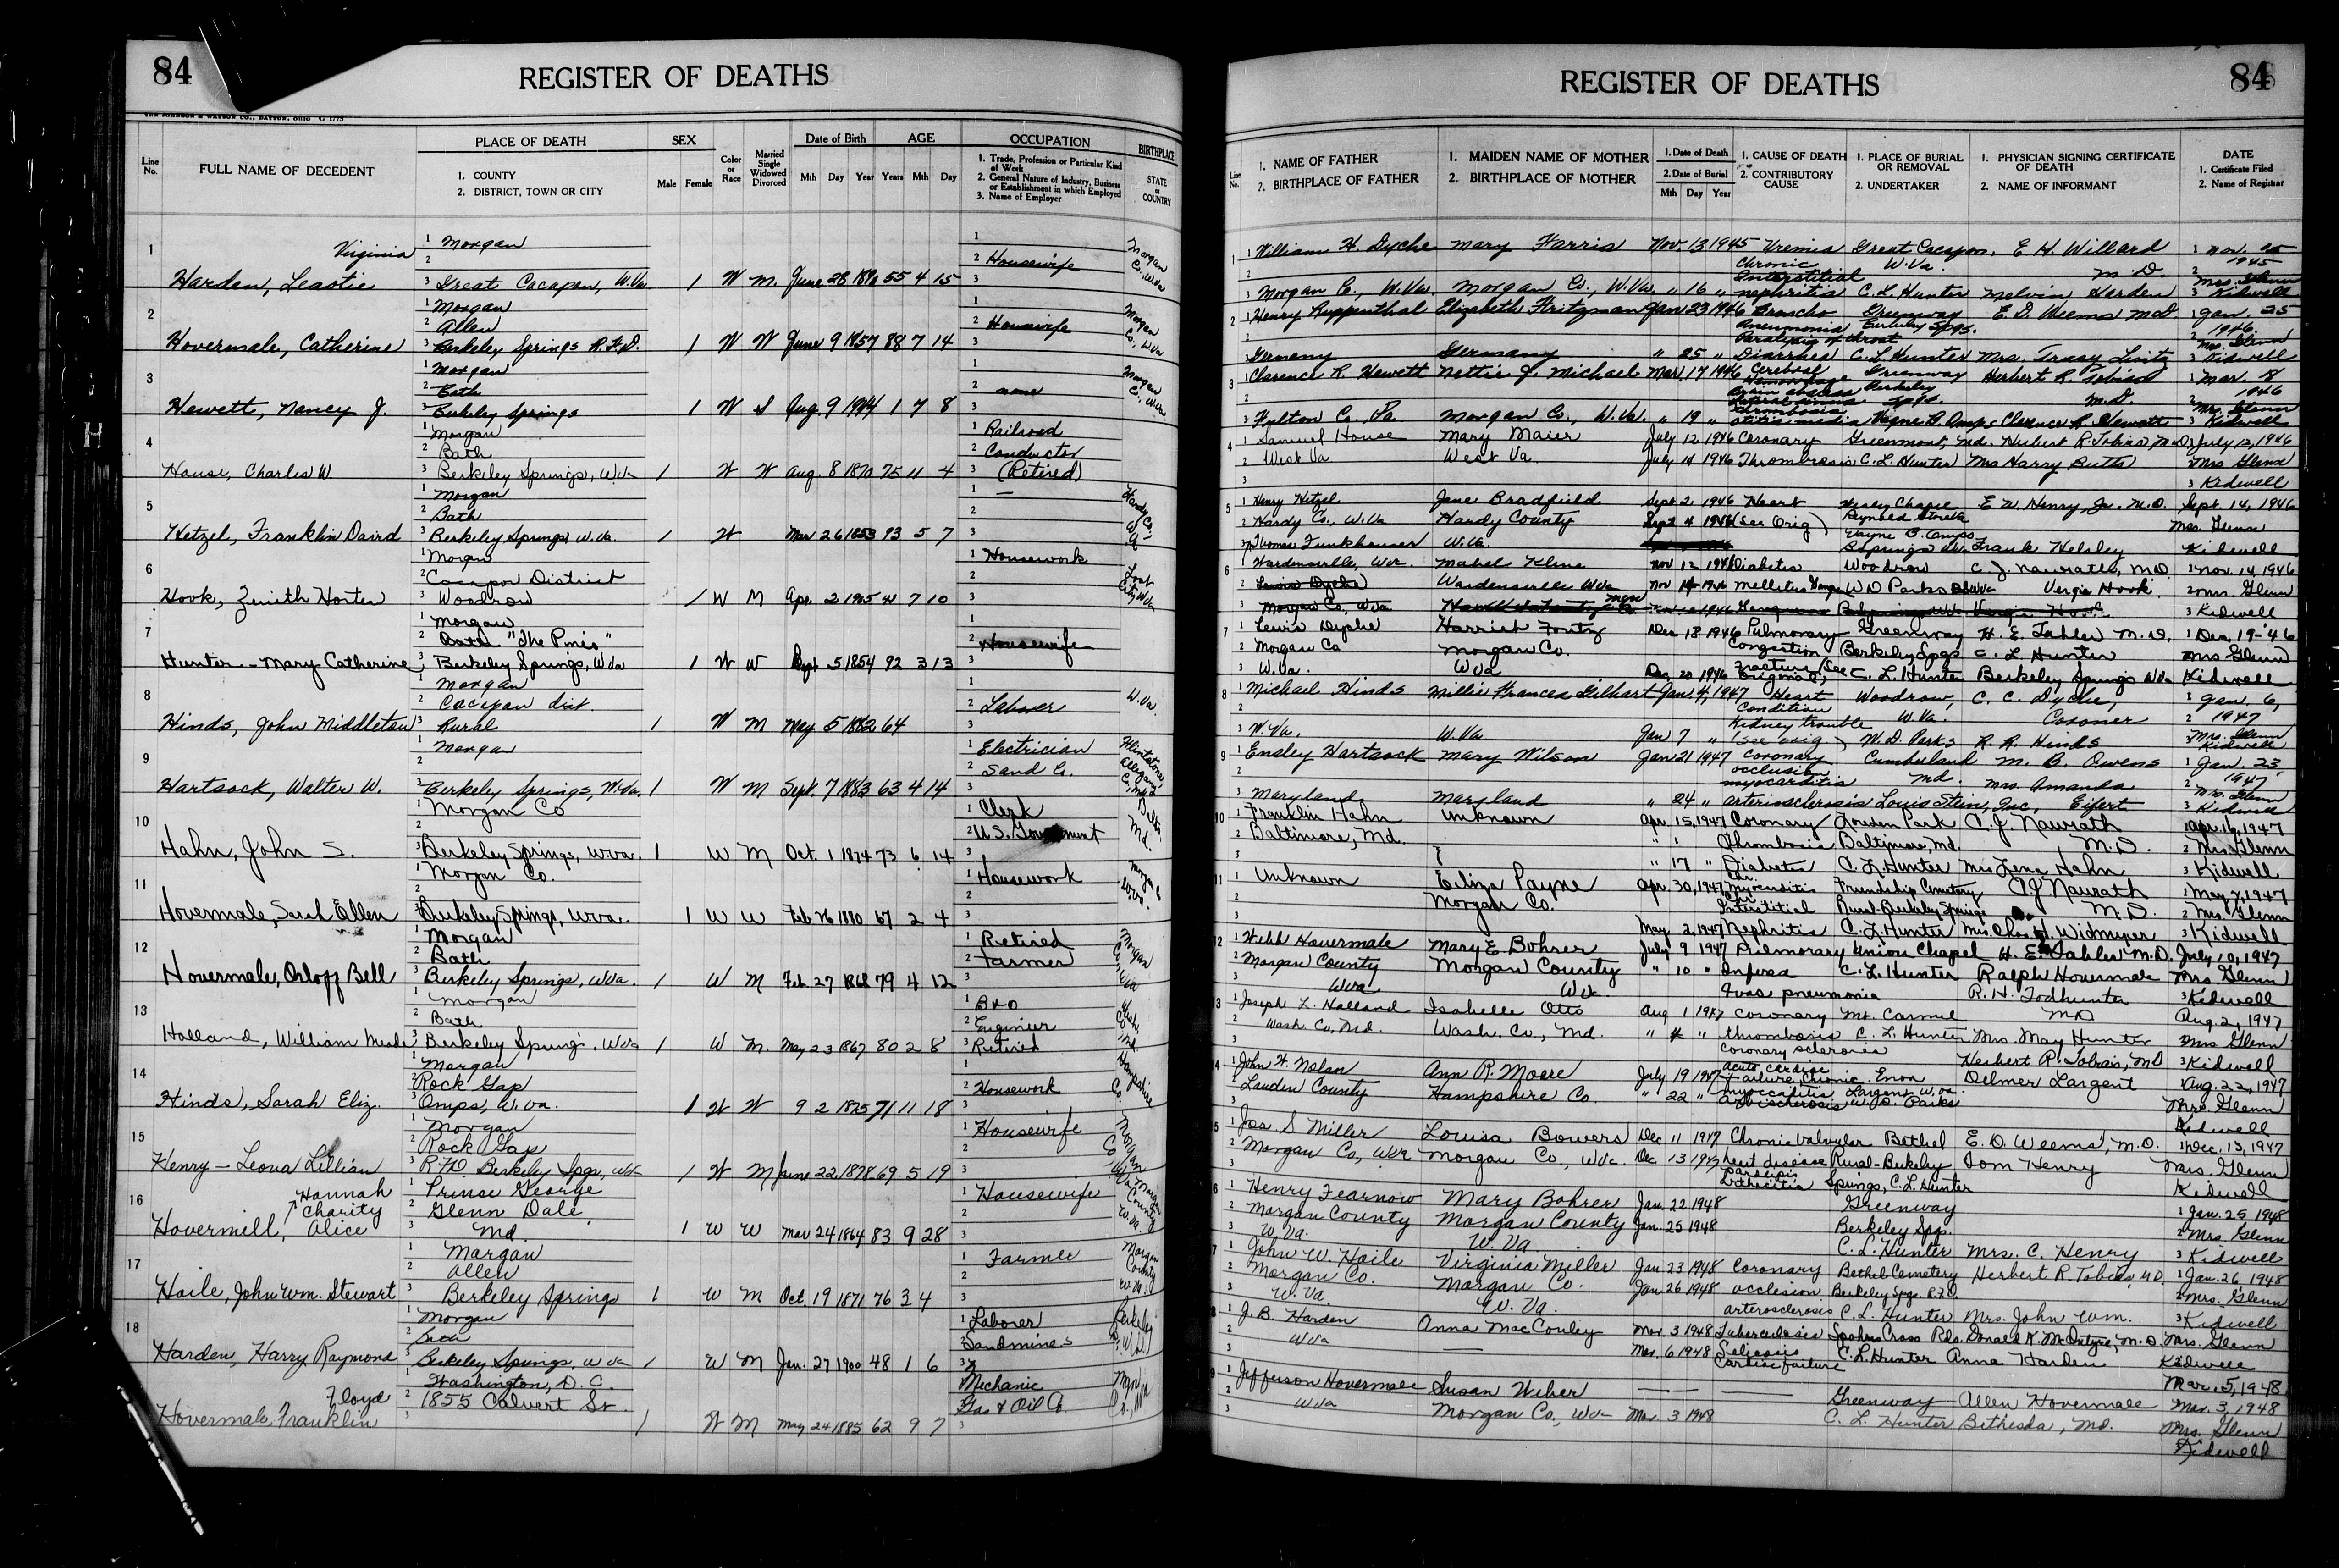 84
REGISTER OF DEATHS
THE JOHNSON & WATSON CO., DAYTON, OHIO G 1775
Line No.
FULL NAME OF DECEDENT
PLACE OF DEATH
1. COUNTY
2. DISTRICT, TOWN OR CITY
SEX
Male Female
Color or Race
Married Single Widowed Divorced
Date of Birth
Mth Day Year
AGE
Years Mth Day
OCCUPATION
1. Trade, Profession or Particular Kind of Work
2. General Nature of Industry, Business or Establishment in which Employed
3. Name of Employer
BIRTHPLACE
STATE or COUNTRY
1
Virginia
1 Morgan
2 Housewife
Morgan Co., W.Va
Harden, Leaotie 3 Great Cacapon, W.Va. 1 W M. June 28 1890 55 4 15
2
1 Morgan
2 Allen
2 Housewife
Morgan Co., W.Va
Hovermale, Catherine 3 Berkeley Springs R.F.D. 1 W W June 9 1857 88 7 14
3
1 Morgan
2 Bath
2 none
Morgan Co., W.Va.
Hewett, Nancy J. 3 Berkeley Springs 1 W S Aug. 9 1944 1 7 8
4
1 Morgan
2 Bath
1 Railroad
2 Conductor
House, Charles W 3 Berkeley Springs, W.Va 1 W W Aug. 8 1870 75 11 4 3 (Retired)
5
1 Morgan
2 Bath
1 —
Hardy Co., W Va
Hetzel, Franklin Daird 3 Berkeley Springs W.Va. 1 W Mar 26 1853 93 5 7
6
1 Morgan
2 Cacapon District
1 Housework
Lost City W Va
Hook, Zenith Horten 3 Woodrow 1 W M Apr. 2 1905 41 7 10
7
1 Morgan
2 Bath "The Pines"
2 Housewife
Hunter - Mary Catherine 3 Berkeley Springs, W Va 1 W W Sept 5 1854 92 3 13
8
1 Morgan
2 Cacapon dist.
2 Laborer
W.Va.
Hinds, John Middleton 3 Rural 1 W M May 5 1882 64
9
1 Morgan
1 Electrician
2 Sand Co.
Flintstone, Allegany Co., Md
Hartsock, Walter W. 3 Berkeley Springs, W.Va. 1 W M Sept. 7 1883 63 4 14
10
1 Morgan Co
1 Clerk
2 U.S. Government
Balto. Md.
Hahn, John S. 3 Berkeley Springs, W.Va. 1 W M Oct. 1 1874 73 6 14
11
1 Morgan Co.
1 Housework
Morgan Co W.Va.
Hovermale, Sarah Ellen 3 Berkeley Springs, W.Va. 1 W W Feb 26 1880 67 2 4
12
1 Morgan
2 Bath
1 Retired
2 Farmer
Morgan Co., W Va
Hovermale, Orloff Bell 3 Berkeley Springs, W Va. 1 W M Feb 27 1868 79 4 12
13
1 Morgan
2 Bath
1 B&O
2 Engineer
Wash. Co Md.
Holland, William Meade 3 Berkeley Springs, W.Va 1 W M. May 23 1867 80 2 8 3 Retired
14
1 Morgan
2 Rock Gap
2 Housework
Hampshire Co.
Hinds, Sarah Eliz. 3 Omps, W.Va. 1 W W 9 2 1875 71 11 18
15
1 Morgan
2 Rock Gap
1 Housewife
Morgan Co W.Va
Henry - Leova Lillian 3 R.F.D. Berkeley Spgs, W.Va 1 W M June 22 1878 69 5 19
16
Hannah Charity
1 Prince George
2 Glenn Dale,
1 Housewife
Morgan County W.Va.
Hovermill, Alice 3 Md. 1 W W Mar 24 1864 83 9 28
17
1 Morgan
2 Allen
1 Farmer
Morgan County W.Va.
Haile, John Wm. Stewart 3 Berkeley Springs 1 W M Oct. 19 1871 76 3 4
18
1 Morgan
2 Bath
1 Laborer
2 Sandmines
Berkeley
Harden, Harry Raymond 3 Berkeley Springs, W Va 1 W M Jan. 27 1900 48 1 6
1 Washington, D. C.
2 1855 Calvert St.
1 Mechanic
2 Gas & Oil Co.
Floyd
Hovermale, Franklin 3 1 W M May 24 1885 62 9 7
84
REGISTER OF DEATHS
Line No.
1. NAME OF FATHER
2. BIRTHPLACE OF FATHER
1. MAIDEN NAME OF MOTHER
2. BIRTHPLACE OF MOTHER
1. Date of Death
2. Date of Burial
Mth Day Year
1. CAUSE OF DEATH
2. CONTRIBUTORY CAUSE
1. PLACE OF BURIAL OR REMOVAL
2. UNDERTAKER
1. PHYSICIAN SIGNING CERTIFICATE OF DEATH
2. NAME OF INFORMANT
DATE
1. Certificate Filed
2. Name of Registrar
1 William H. Dyche Mary Harris Nov. 13 1945 Uremia Great Cacapon, E H. Willard 1 Nov. 25
Chronic W.Va. M.D. 1945
Interstitial Mrs. Glenn
Morgan C., W.Va. Morgan Co., W.Va. " 16 " nephritis C. L. Hunter Melvin Harden Kidwell
2 Henry Ruppenthal Elizabeth Fritzman Jan 23 1946 Broncho Greenway E. D. Weems M.D. 1 Jan. 25
Pneumonia Berkeley Spgs. 1946
Paralysis of throat Mrs. Glenn
Germany Germany " 25 " Diarrhea C. L. Hunter Mrs. Tracy Lintz Kidwell
3 Clarence R. Hewett Nettie J. Michael Mar. 17 1946 Cerebral Greenway Herbert R. Tobias 1 Mar. 18
Hemorrhage Berkeley M.D. 1946
Brain abscess Spgs.
thrombosis Mrs. Glenn
Fulton Co., Pa. Morgan Co., W.Va. " 19 " otitis media Wayne B. Omps Clarence R. Hewett Kidwell
4 Samuel House Mary Maier July 12 1946 Coronary Greenmont, Md. Hubert R. Tobias, M.D. July 12, 1946
West Va West Va. July 14 1946 Thrombosis C. L. Hunter Mrs Harry Butts Mrs Glenn
Kidwell
5 Henry Hetzel Jane Bradfield Sept. 2 1946 Heart Chapel E W. Henry, Jr. M.D. Sept. 14, 1946
Hardy Co., W.Va Hardy County Sept 4 1946 (See Orig) Reynold Store Mrs. Glenn
Wayne B. Omps
Thomas Funkhouser W.Va. B Springs W.Va. Frank Helsley Kidwell
6 Wardensville, W.Va. Mabel Kline Nov 12 1946 Diabetes Woodrow C. J. Naurath, M.D. 1 Nov. 14, 1946
Lewis Dyche Wardensville W.Va Nov 14 1946 Mellitus W D Parks Vergie Hook Mrs Glenn
Morgan Co, W.Va Kidwell
7 Lewis Dyche Harriet Fontz Dec 18 1946 Pulmonary Greenway H. E. Tabler M.D. 1 Dec. 19-'46
Morgan Co Morgan Co. Congestion Berkeley Spgs C. L. Hunter Mrs Glenn
W.Va. W Va Dec. 20 1946 Fracture (See Original) C. L. Hunter Berkeley Springs W.Va Kidwell
8 Michael Hinds Millie Frances Gilhart Jan 4, 1947 Heart Woodrow, C. C. Dyche, 1 Jan. 6,
Condition W.Va. Coroner 1947
Kidney trouble Mrs. Glenn
W.Va. W.Va Jan 7 " (see orig) W. D. Parks R. R. Hinds Kidwell
9 Ensley Hartsock Mary Wilson Jan 21 1947 Coronary Cumberland M. B. Owens 1 Jan. 23,
occlusion Md. 1947
myocarditis Mrs. Amanda Mrs. Glenn
Maryland Maryland " 24 " arteriosclerosis Louis Stein, Inc. Eifert Kidwell
10 Franklin Hahn Unknown Apr. 15, 1947 Coronary Louden Park C. J. Naurath 1 Apr. 16, 1947
Baltimore, Md. ? Thrombosis Baltimore, Md. M.D. Mrs. Glenn
" 17 " Diabetes C. L. Hunter Mrs Lena Hahn Kidwell
11 Unknown Eliza Payne Apr. 30, 1947 Friendship Cemetery CJ Naurath 1 May 7, 1947
Morgan Co. Interstitial Rural-Berkeley Springs M.D. Mrs. Glenn
May 2, 1947 Nephritis C. L. Hunter Mrs. Chas. H. Widmyer Kidwell
12 Webb Hovermale Mary E. Bohrer July 9 1947 Pulmonary Union Chapel H. E. Tabler M.D. July 10, 1947
Morgan County Morgan County " 10 " C. L. Hunter Ralph Hovermale Mrs. Glenn
W Va W Va. pneumonia R. H. Todhunter Kidwell
13 Joseph L. Holland Isabelle Otto Aug 1 1947 Coronary Mt. Carmel MD Aug. 2, 1947
Wash. Co, Md. Wash. Co., Md. " 4 " thrombosis C. L. Hunter Mrs. May Hunter Mrs Glenn
Coronary sclerosis Kidwell
14 John H. Nolan Ann R. Moore July 19 1947 acute cardiac Herbert R. Tobias, MD
failure, Chronic Enon Delmer Largent Aug. 22, 1947
Louden County Hampshire Co. " 22 " myocarditis Largent W.Va. Mrs. Glenn
W. D. Parks Kidwell
15 Jas. S Miller Louisa Bowers Dec 11 1947 Chronic valvular Bethel E. D. Weems, M.D. 1 Dec. 13, 1947
Morgan Co, W.Va Morgan Co., W.Va. Dec 13 1947 heart disease Rural-Berkeley Tom Henry Mrs. Glenn
Springs, C. L. Hunter Kidwell
16 Henry Fearnow Mary Bohrer Jan. 22 1948 Greenway 1 Jan. 25 1948
Morgan County Morgan County Jan. 25 1948 Berkeley Spgs. Mrs. Glenn
W. Va. W. Va. C. L. Hunter Mrs. C. Henry Kidwell
17 John W. Haile Virginia Miller Jan 23 1948 Coronary Bethel Cemetery Herbert R. Tobias, M.D. 1 Jan. 26, 1948
Morgan Co. Morgan Co. Jan 26 1948 occlusion Berkeley Spgs. R.F.D. Mrs. Glenn
W. Va. W. Va. arterosclerosis C. L. Hunter Mrs. John Wm. Kidwell
18 J. B. Harden Anna MacCouley Mar. 3 1948 Tuberculosis Spohrs Cross Rds. Donald K. McIntyre, M.D. Mrs. Glenn
W Va — Mar. 6 1948 Silicosis C. L. Hunter Anna Harden Kidwell
Cardiac failure Mar. 5, 1948
19 Jefferson Hovermale Susan Weber — — — Greenway — Allen Hovermale Mar. 3, 1948
W Va Morgan Co., W Va Mar. 3 1948 C. L. Hunter Bethesda, Md. Mrs. Glenn
Kidwell